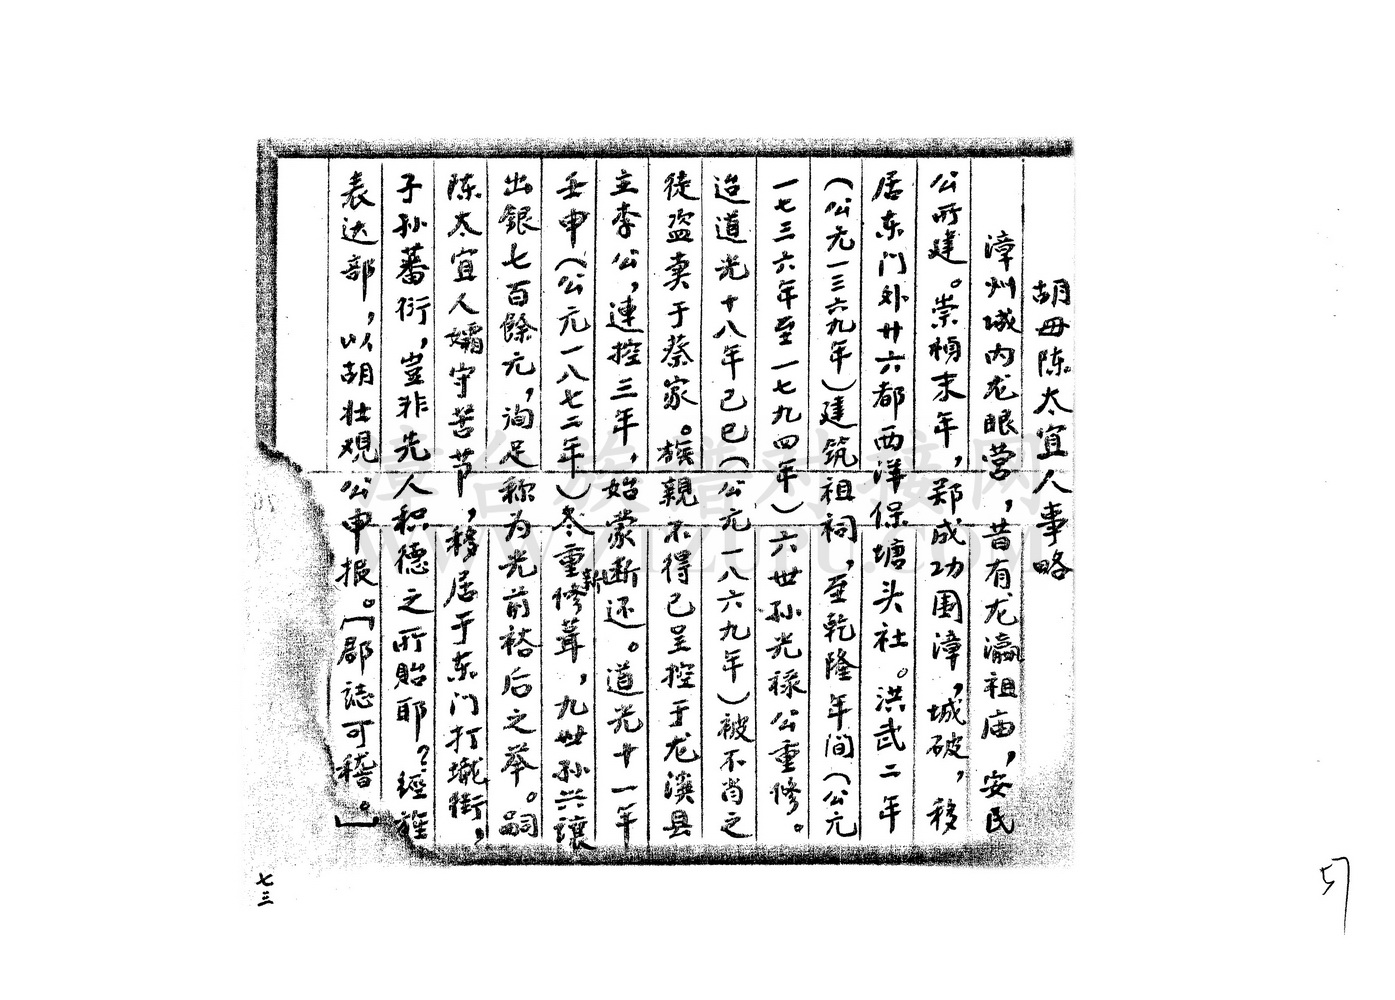 胡毋陈太宜人事略
漳州城内龙眼营，昔有龙瀛祖庙，安民
公所建。崇祯末年，郑成功围漳，城破，移
居东门外廿六都西洋保塘头社。洪武二年
（公元一三六九年）建筑祖祠，至乾隆年间（公元
一七三六年至一七九四年）六世孙光禄公重修。
迨道光十八年己巳（公元一八六九年）被不肖之
徒盗卖于蔡家。族親不得已呈控于龙溪县
主李公，連控三年，始蒙断还。道光十一年
壬申（公元一八七二年）冬重修葺，九世孙兴讓
新
出銀七百餘元，洵足称为光前裕后之举。嗣
陈太宜人孀守苦节，移居于东门打城街，
子孙蕃衍，豈非先人积德之所貽耶？經旌
表达部，以胡壮观公申报。「郡誌可稽。」
七三
57
漳台族谱对接网
WWW.ZTZUPU.COM